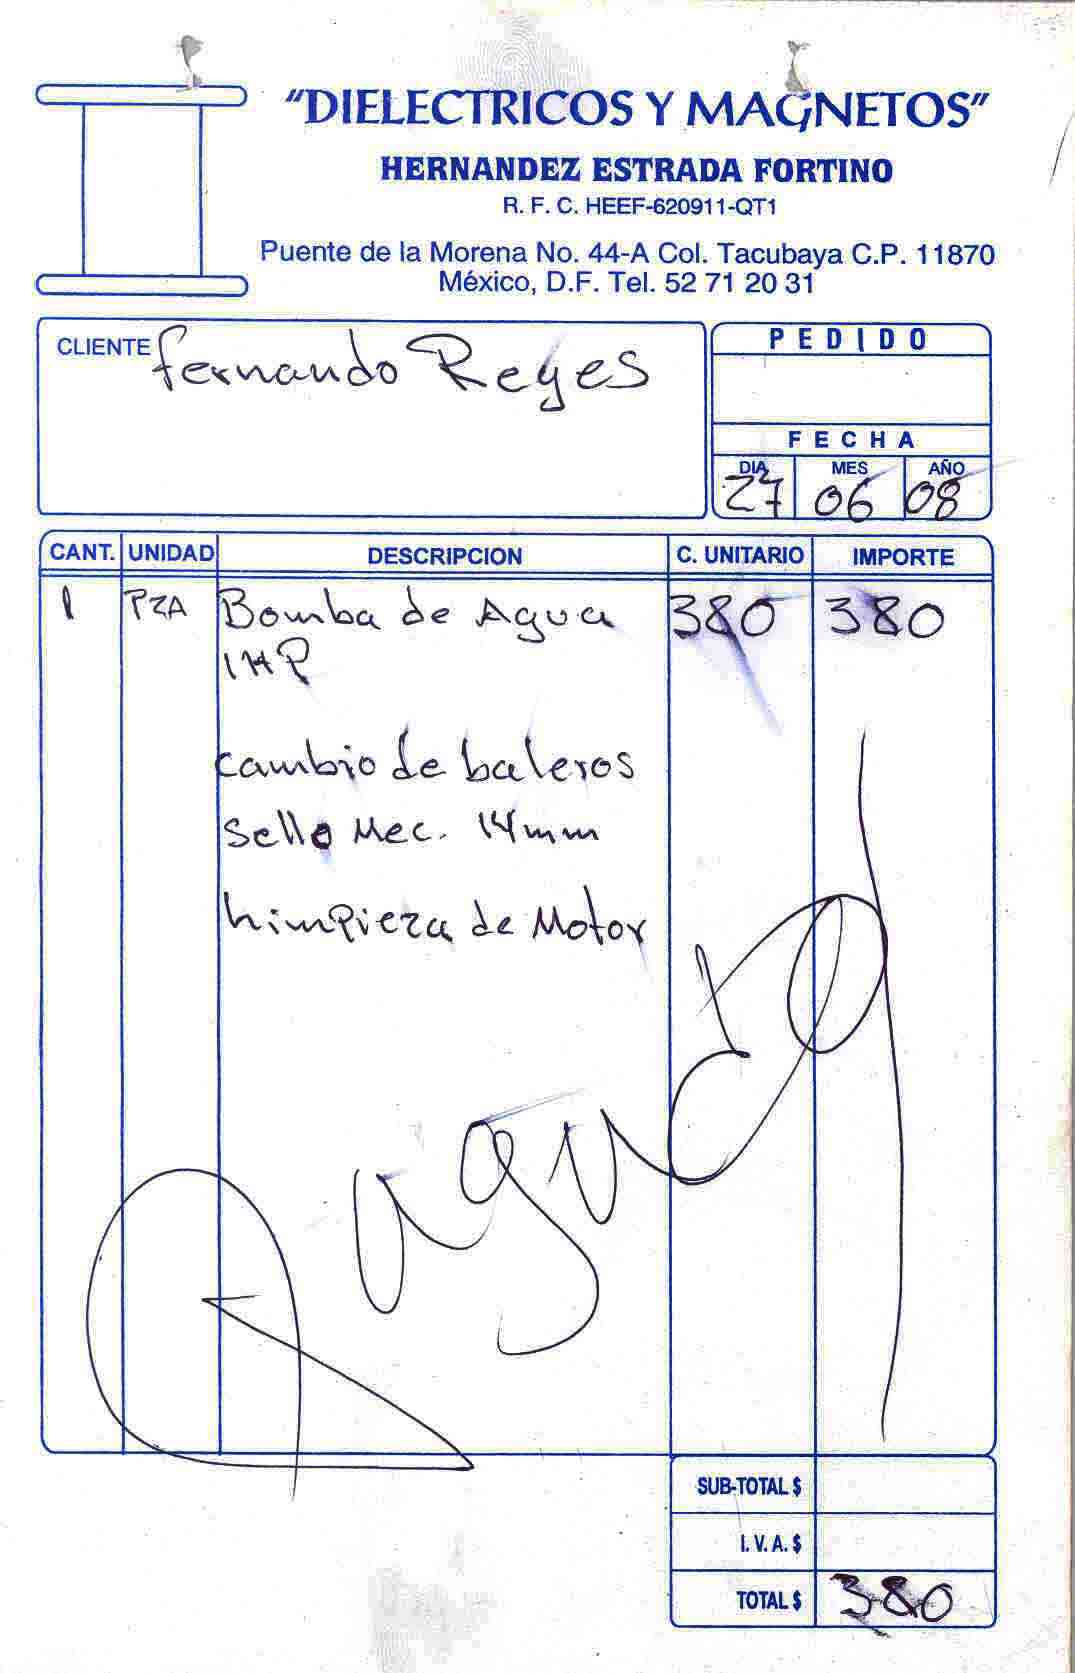 "DIELECTRICOS Y MAGNETOS"
HERNANDEZ ESTRADA FORTINO
R. F. C. HEEF-620911-QT1
Puente de la Morena No. 44-A Col. Tacubaya C.P. 11870
México, D.F. Tel. 52 71 20 31
CLIENTE Fernando Reyes
PEDIDO
FECHA
DIA MES AÑO
27 06 08
CANT. UNIDAD DESCRIPCION C. UNITARIO IMPORTE
1 PZA Bomba de Agua 380 380
1HP
cambio de baleros
Sello Mec. 14mm
Limpieza de Motor
Pagado
SUB-TOTAL $
I. V. A. $
TOTAL $ 380